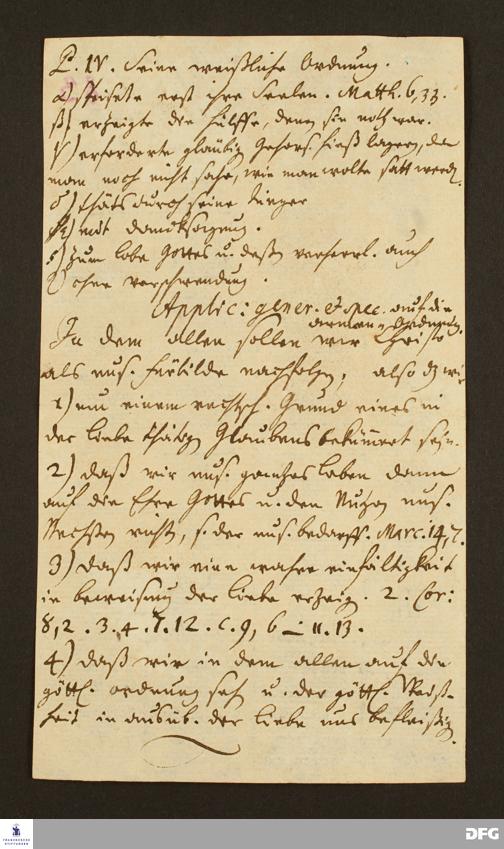 P. IV. Seine weißliche Ordnung.
α) speisete erst ihre Seelen. Matth. 6, 33.
β) erzeigte die hülffe, denen sie noth war.
γ) erforderte gläubig Gehors. hieß lagern, da
man noch nicht sahe, wie man wolte satt werd.
δ) thäts durch seine Jünger
ε) mit Dancksagung.
ζ) zum lobe Gottes u. deßen verherrl. auch
ohne verschwendung.
Applic: gener. et spec. auf die
armen Ordnung.
In dem allen sollen wir Christo
als uns. fürbilde nachfolgen, also dz wir
1) um einem rechtsch. Grund eines in
der liebe thätigen Glaubens bekümmert seyn.
2) daß wir uns. gantzes leben dann
auf die Ehre Gottes u. den Nutzen uns.
Nechsten richten, s. der uns. bedarff. Marc. 14, 7.
3) daß wir eine wahre einfältigkeit
in beweisung der liebe erzeig. 2. Cor:
8, 2. 3. 4. 7. 12. c. 9, 6 - 11. 13.
4) daß wir in dem allen auf die
göttl. ordnung seh u. der göttl. Weiß-
heit in ausüb. der liebe uns befleißig.
FRANCKESCHE STIFTUNGEN
DFG